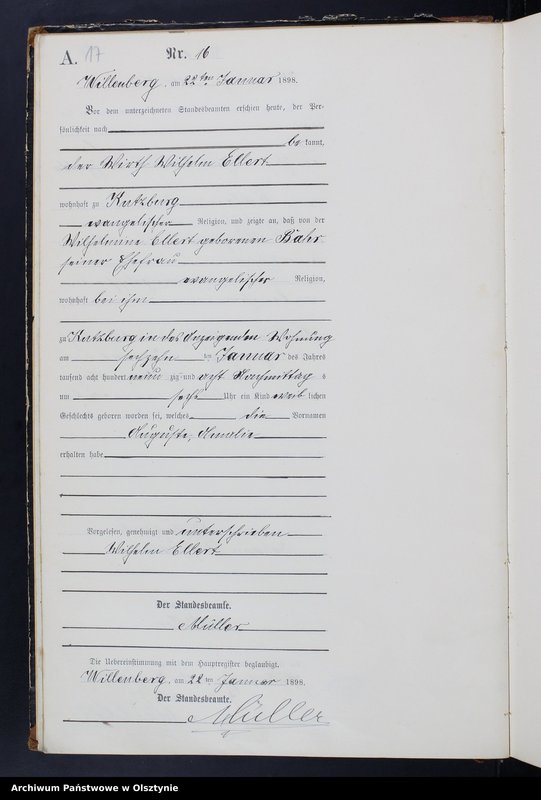 A. 17 Nr. 16
Willenberg, am 22ten Januar 1898.
Vor dem unterzeichneten Standesbeamten erschien heute, der Per-
sönlichkeit nach
be kannt,
der Wirth Wilhelm Ellert
wohnhaft zu Kutzburg
evangelischer Religion, und zeigte an, daß von der
Wilhelmine Ellert geborenen Bahr
seiner Ehefrau
evangelischer Religion,
wohnhaft bei ihm
zu Kutzburg in des Anzeigenden Wohnung
am sechzehn ten Januar des Jahres
tausend acht hundert neun zig und acht Nachmittag s
um sechs Uhr ein Kind weib lichen
Geschlechts geboren worden sei, welches die Vornamen
Auguste, Amalie
erhalten habe
Vorgelesen, genehmigt und unterschrieben
Wilhelm Ellert
Der Standesbeamte.
Müller
Die Uebereinstimmung mit dem Hauptregister beglaubigt.
Willenberg, am 22 ten Januar 1898.
Der Standesbeamte.
Müller
Archiwum Państwowe w Olsztynie